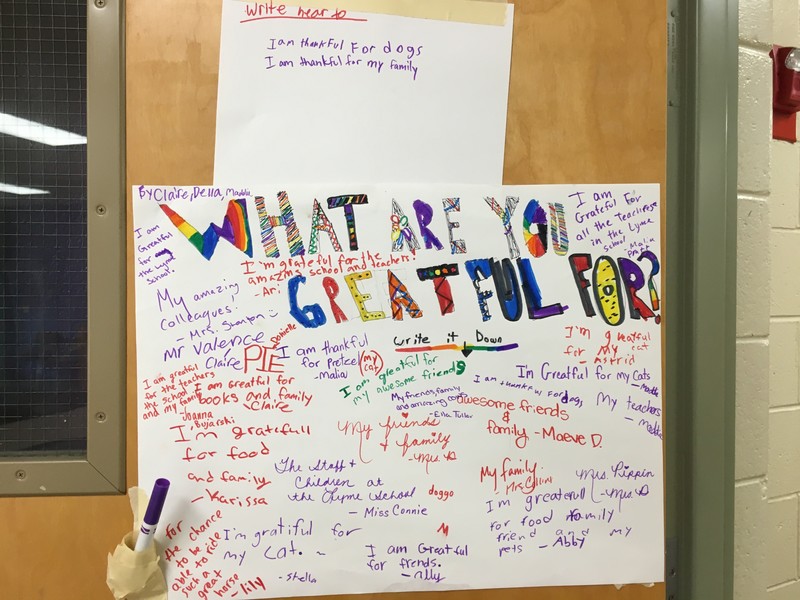 Write hear to
I am thankful For dogs
I am thankful for my family
By Claire, Della, Maddie
WHAT ARE YOU
GREATFUL FOR?
I am
Greatful
for
the Lyme
School.
I am
Grateful For
all the teachers
in the Lyme
school Malia
I'm grateful for the
amazing school and teachers!
- Ari
My amazing
colleagues!
- Mrs. Stanton
Mr Valence
Claire
PIE
Danielle
I am thankful
for Pretzel (my cat)
- Malia
write it Down
I'm greatful
for My cat
- Astrid
I am greatful
for the teachers
the school
and my family
Joanna
Bujarski
I am Greatful for
books and family
- Claire
I am greatful for
my awesome friends
My friends, family
and amazing
- Ella Tullar
I am thankful for dogs
Im Greatful for my Cats
My teachers
awesome friends
&
family - Maeve D.
I'm gratefull
for food
and family
- Karissa
My friends
& family
- Mrs. D
The Staff &
Children at
the Lyme School
- Miss Connie
doggo
My family
- Mrs Collini
Mrs. Pippin
- Mrs. D
Im greateful
for food family
friend and my
pets - Abby
for
the chance
to be
able to ride
such a
great
horse
- lily
I'm gratiful for
my Cat. ~
- Shella
M
I am Greatful
for frends.
- ally